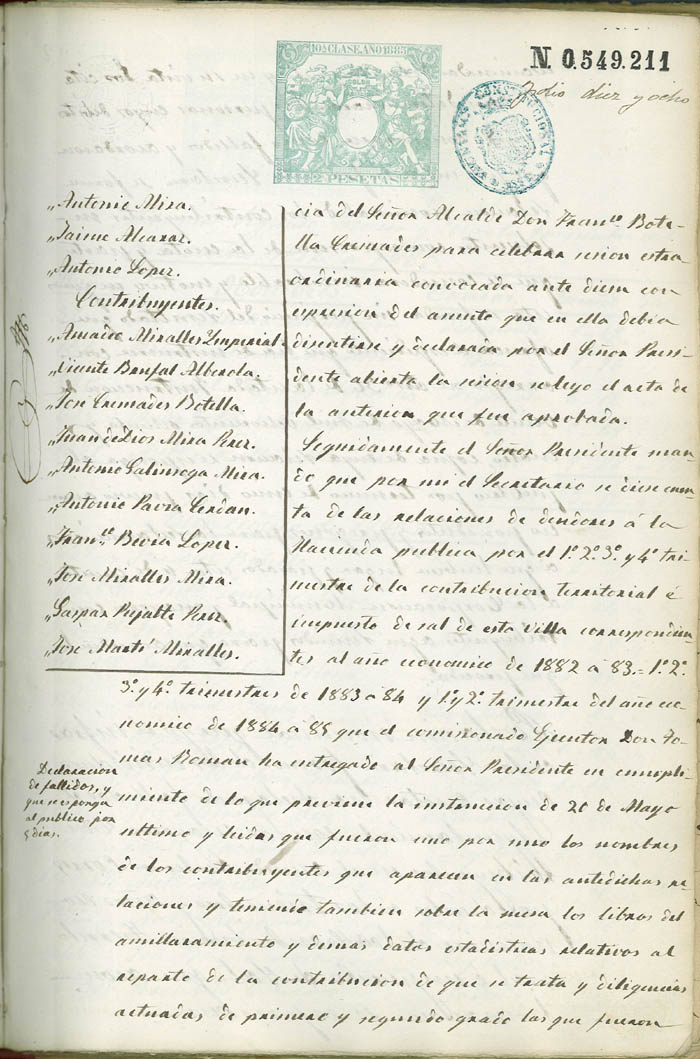 10ª CLASE. AÑO 1885
2 PESETAS
N 0.549.211
Folio diez y ocho
„Antonio Mira.
„Jaime Alcaraz.
„Antonio Lopez.
Contribuyentes.
„Amadeo Miralles Ymperial.
„Vicente Brufal Alberola.
„Jose Cremades Botella.
„Juan de Dios Mira Perez.
„Antonio Galinsoga Mira.
„Antonio Pavia Cerdan.
„Fran.co Bevia Lopez.
„Jose Miralles Mira.
„Gaspar Pujalte Perez.
„Jose Marti Miralles.
cia del Señor Alcalde Don Fran.co Bote-
lla Cremades para celebrar sesion estra-
ordinaria convocada ante diem con
espresion del asunto que en ella debia
discutirse y declarada por el Señor Presi-
dente abierta la sesion se leyo el acta de
la anterior que fue aprobada.
Seguidamente el Señor Presidente man-
do que por mi el Secretario se diese cuen-
ta de las relaciones de deudores á la
Hacienda publica por el 1º 2º 3º y 4º tri-
mestre de la contribucion territorial é
impuesto de sal de esta villa correspondien-
tes al año economico de 1882 a 83.= 1º 2º
3º y 4º trimestres de 1883 a 84 y 1º y 2º trimestre del año eco-
nomico de 1884 a 85 que el comisionado Ejecutor Don To-
mas Roman ha entregado al Señor Presidente en cumpli-
miento de lo que previene la instruccion de 20 de Mayo
ultimo y leidas que fueron uno por uno los nombres
de los contribuyentes que aparecen en las antedichas re-
laciones y teniendo tambien sobre la mesa los libros del
amillaramiento y demas datos estadisticos relativos al
reparto de la contribucion de que se trata y diligencias
actuadas de primero y segundo grado las que fueron
Declaracion
de fallidos, y
que se esponga
al publico por
5 dias.